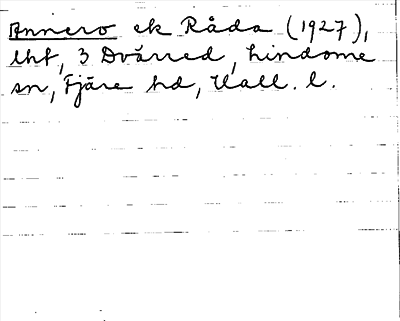 Annero ek Råda (1927),
lht, 3 Dvärred, Lindome
sn, Fjäre hd, Hall. l.